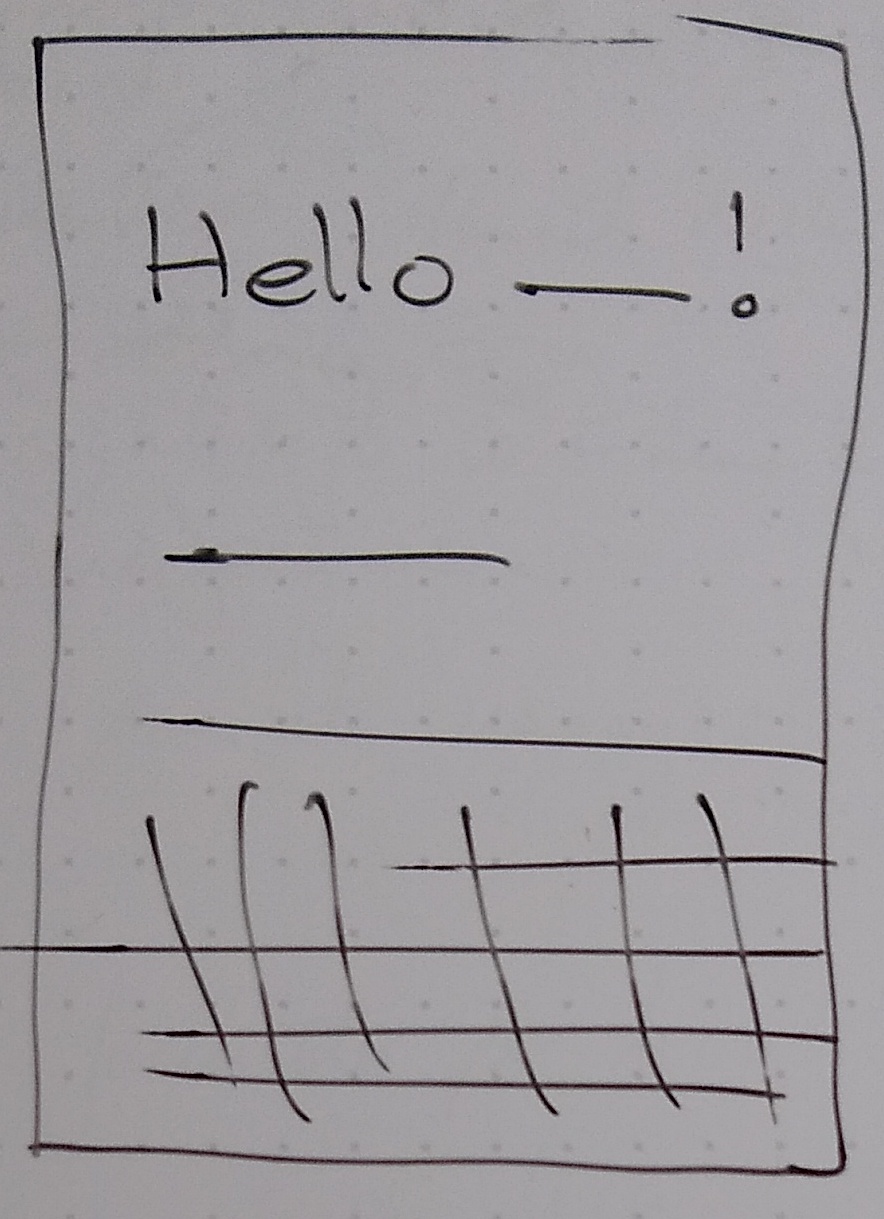 Hello —!